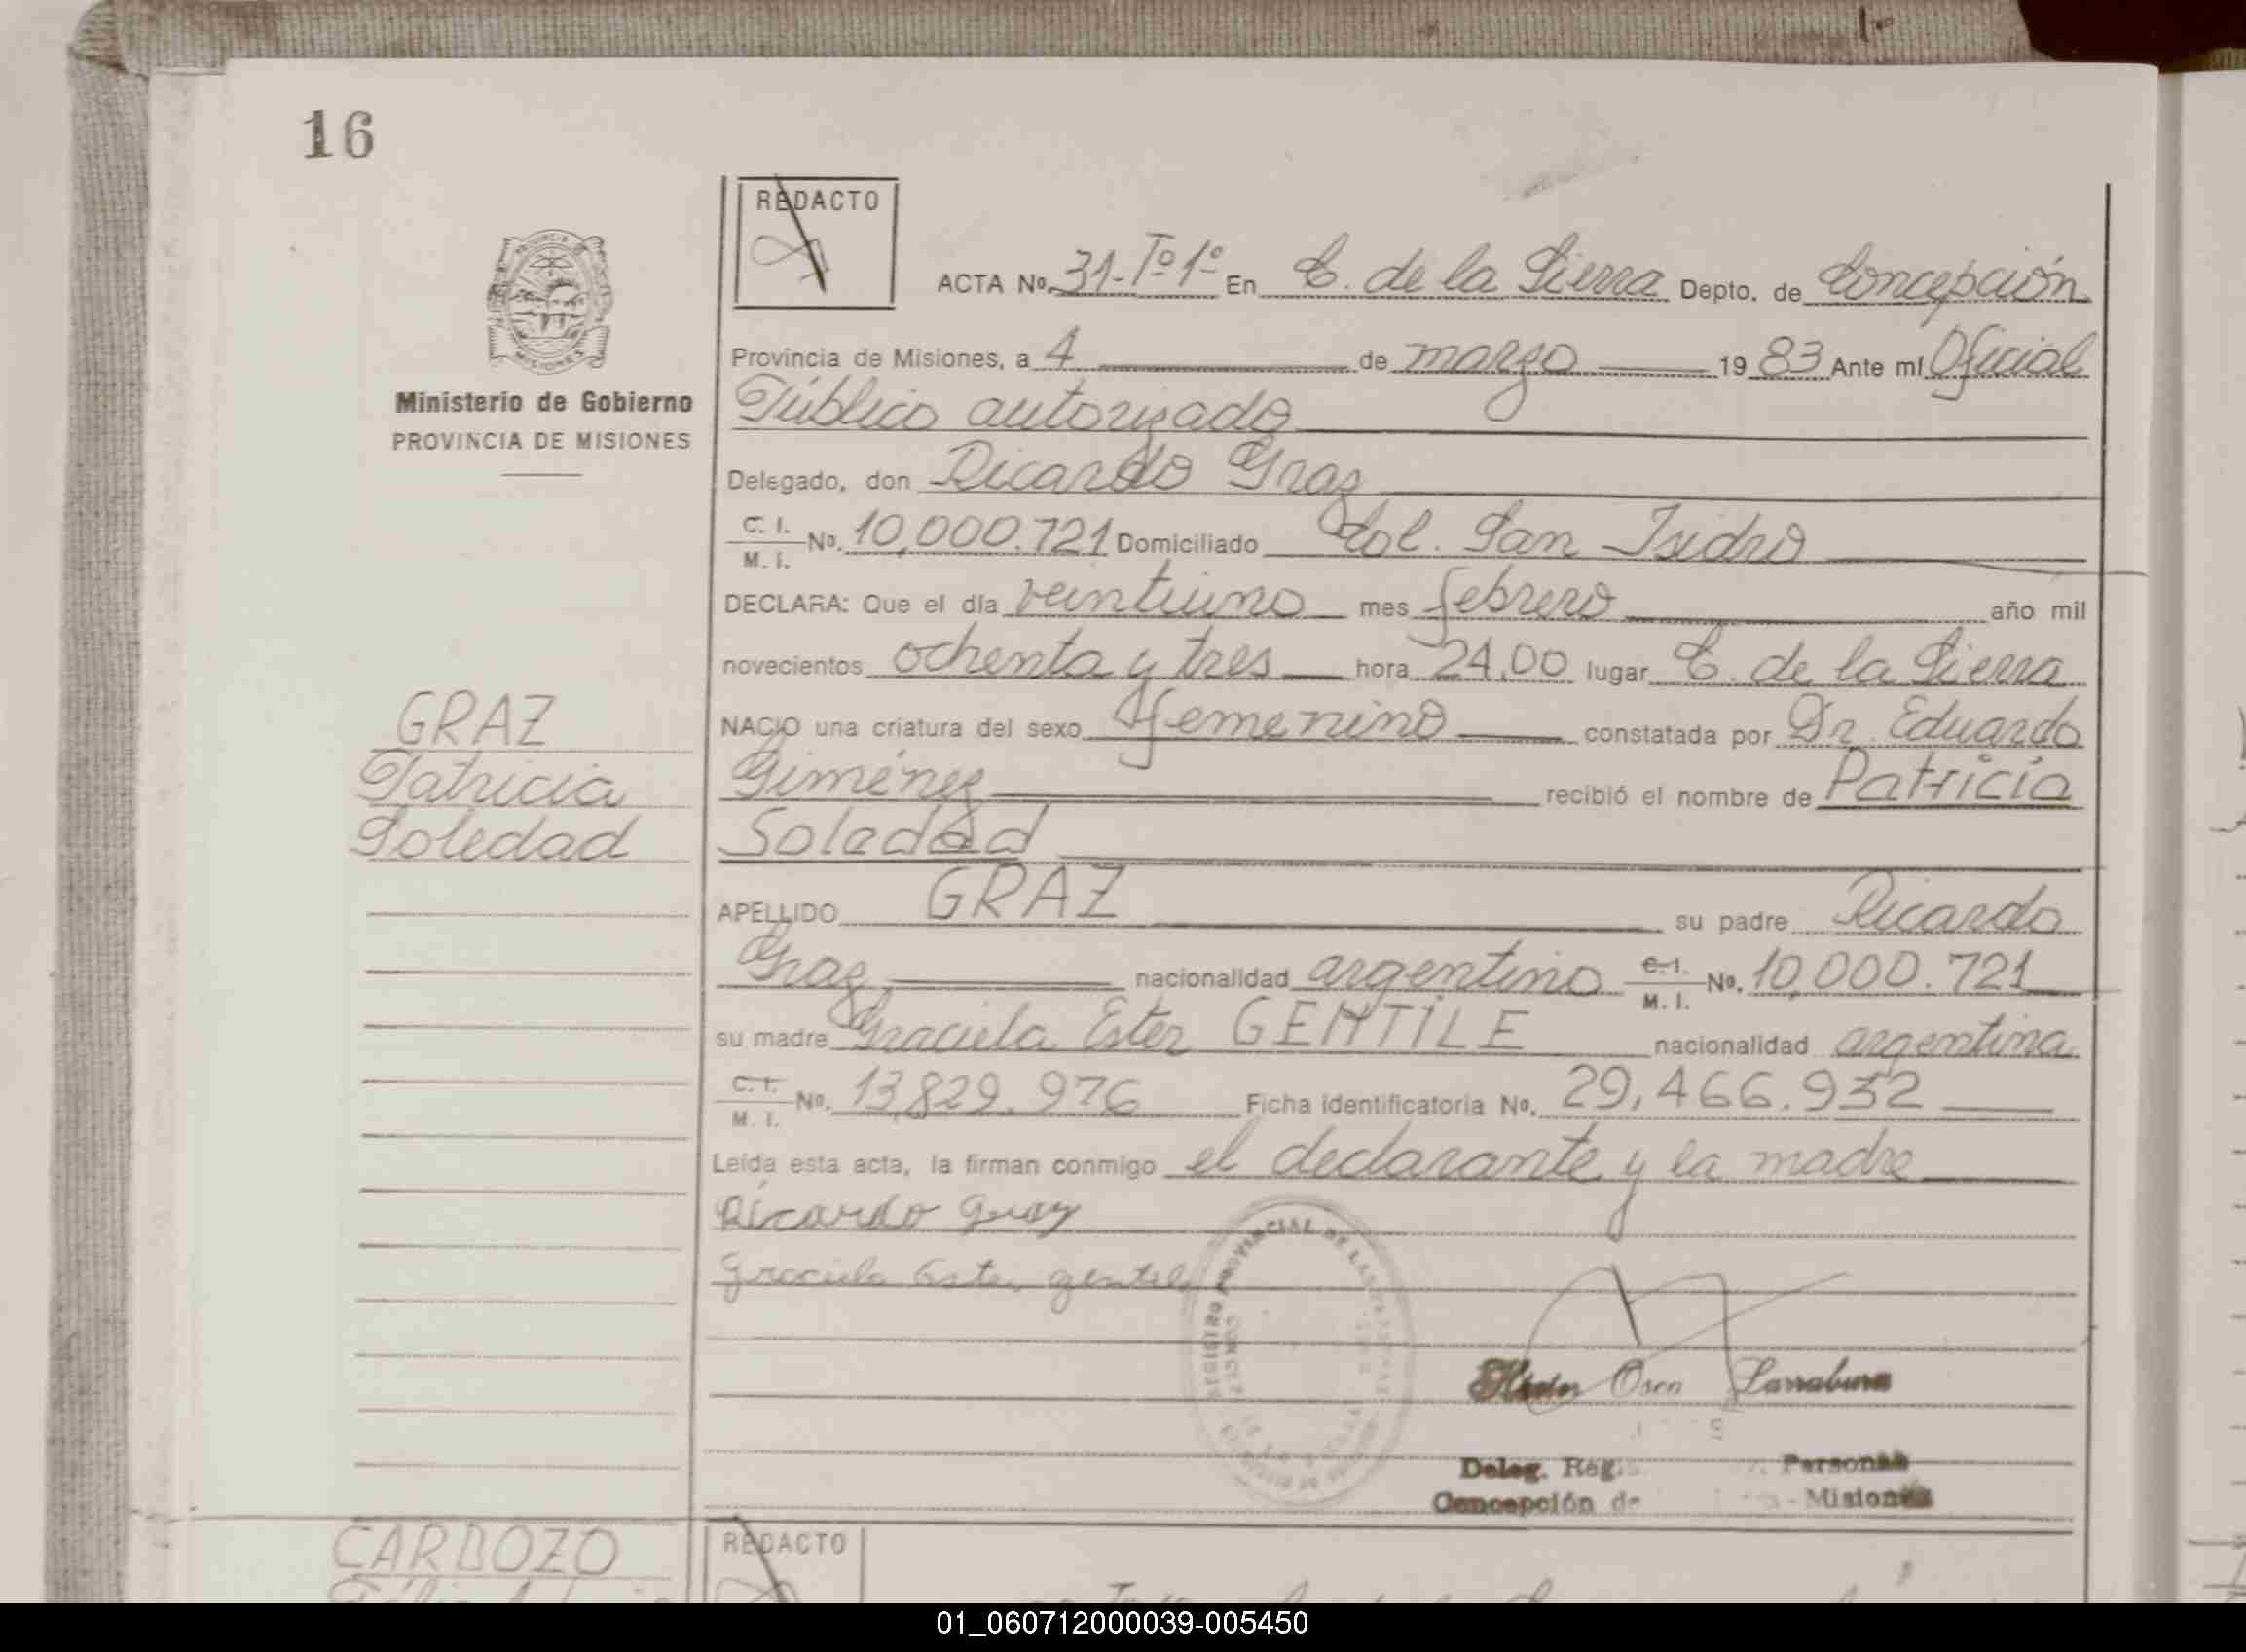 16
REDACTO
ACTA Nº. 31-Tº1º En C. de la Sierra Depto. de Concepción
Provincia de Misiones, a 4 de marzo 1983 Ante mí Oficial
Público autorizado
Ministerio de Gobierno
PROVINCIA DE MISIONES
Delegado, don Ricardo Graz
C. I. M. I. Nº. 10,000.721 Domiciliado Col. San Isidro
DECLARA: Que el día veintiuno mes febrero año mil
novecientos ochenta y tres hora 24,00 lugar C. de la Sierra
NACIO una criatura del sexo femenino constatada por Dr. Eduardo
Giménez recibió el nombre de Patricia
Soledad
GRAZ
Patricia
Soledad
APELLIDO GRAZ su padre Ricardo
Graz nacionalidad argentino C.I. M. I. Nº. 10,000.721
su madre Graciela Ester GENTILE nacionalidad argentina
C. I. M. I. Nº. 13,829.976 Ficha identificatoria Nº. 29,466.932
Leída esta acta, la firman conmigo el declarante y la madre
Ricardo Graz
Graciela Ester gentile
REGISTRO PROVINCIAL DE LAS PERSONAS
Larrabure
Deleg. Reg. Personas
Concepción de Misiones
CARDOZO
REDACTO
01_060712000039-005450